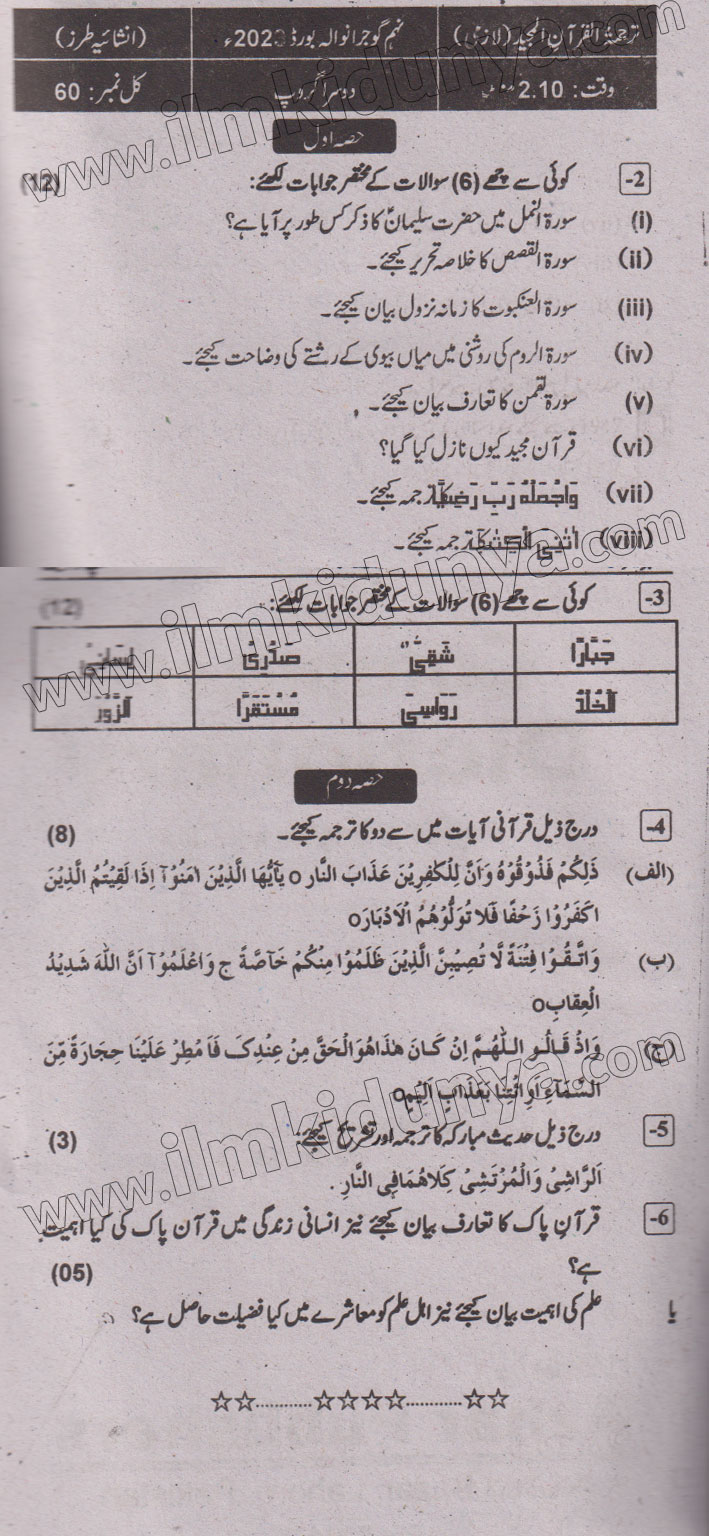 ترجمۃ القرآن المجید (لازمی) نہم گوجرانوالہ بورڈ 2023ء (انشائیہ طرز)
وقت: 2.10 دوسرا گروپ کل نمبر: 60
حصہ اول
2- کوئی سے چھے (6) سوالات کے مختصر جوابات لکھئے: (12)
(i) سورۃ النمل میں حضرت سلیمانؑ کا ذکر کس طور پر آیا ہے؟
(ii) سورۃ القصص کا خلاصہ تحریر کیجئے۔
(iii) سورۃ العنکبوت کا زمانہ نزول بیان کیجئے۔
(iv) سورۃ الروم کی روشنی میں میاں بیوی کے رشتے کی وضاحت کیجئے۔
(v) سورۃ لقمن کا تعارف بیان کیجئے۔
(vi) قرآن مجید کیوں نازل کیا گیا؟
(vii) وَاجْعَلْهُ رَبِّ رَضِيًّا ترجمہ کیجئے۔
(viii) اٰتٰنِیَ الْکِتٰبَ ترجمہ کیجئے۔
3- کوئی سے چھے (6) سوالات کے مختصر جوابات لکھئے: (12)
جَبَّارًا شَقِیًّا صَدْرِیْ لِسَانِیْ
الْخُلْدِ رَوَاسِیَ مُسْتَقَرًّا الزُّوْرَ
حصہ دوم
4- درج ذیل قرآنی آیات میں سے دو کا ترجمہ کیجئے۔ (8)
(الف) ذٰلِکُمْ فَذُوْقُوْہُ وَاَنَّ لِلْکٰفِرِیْنَ عَذَابَ النَّار o یٰٓاَیُّھَا الَّذِیْنَ اٰمَنُوْٓا اِذَا لَقِیْتُمُ الَّذِیْنَ
اکَفَرُوْا زَحْفًا فَلَا تُوَلُّوْھُمُ الْاَدْبَارَo
(ب) وَاتَّقُوْا فِتْنَةً لَّا تُصِیْبَنَّ الَّذِیْنَ ظَلَمُوْا مِنْکُمْ خَآصَّةً ج وَاعْلَمُوْٓا اَنَّ اللّٰہَ شَدِیْدُ
الْعِقَابِo
(ج) وَاِذْ قَالُو اللّٰھُمَّ اِنْ کَانَ ھٰذَا ھُوَالْحَقَّ مِنْ عِنْدِکَ فَاَمْطِرْ عَلَیْنَا حِجَارَةً مِّنَ
السَّمَآءِ اَوِائْتِنَا بِعَذَابٍ اَلِیْمٍo
5- درج ذیل حدیث مبارکہ کا ترجمہ اور تشریح کیجئے: (3)
اَلرَّاشِیْ وَالْمُرْتَشِیْ کِلَاھُمَافِی النَّارِ .
6- قرآن پاک کا تعارف بیان کیجئے نیز انسانی زندگی میں قرآن پاک کی کیا اہمیت
ہے؟ (05)
یا علم کی اہمیت بیان کیجئے نیز اہل علم کو معاشرے میں کیا فضیلت حاصل ہے؟
☆☆............☆☆☆☆............☆☆
www.ilmkidunya.com
www.ilmkidunya.com
www.ilmkidunya.com